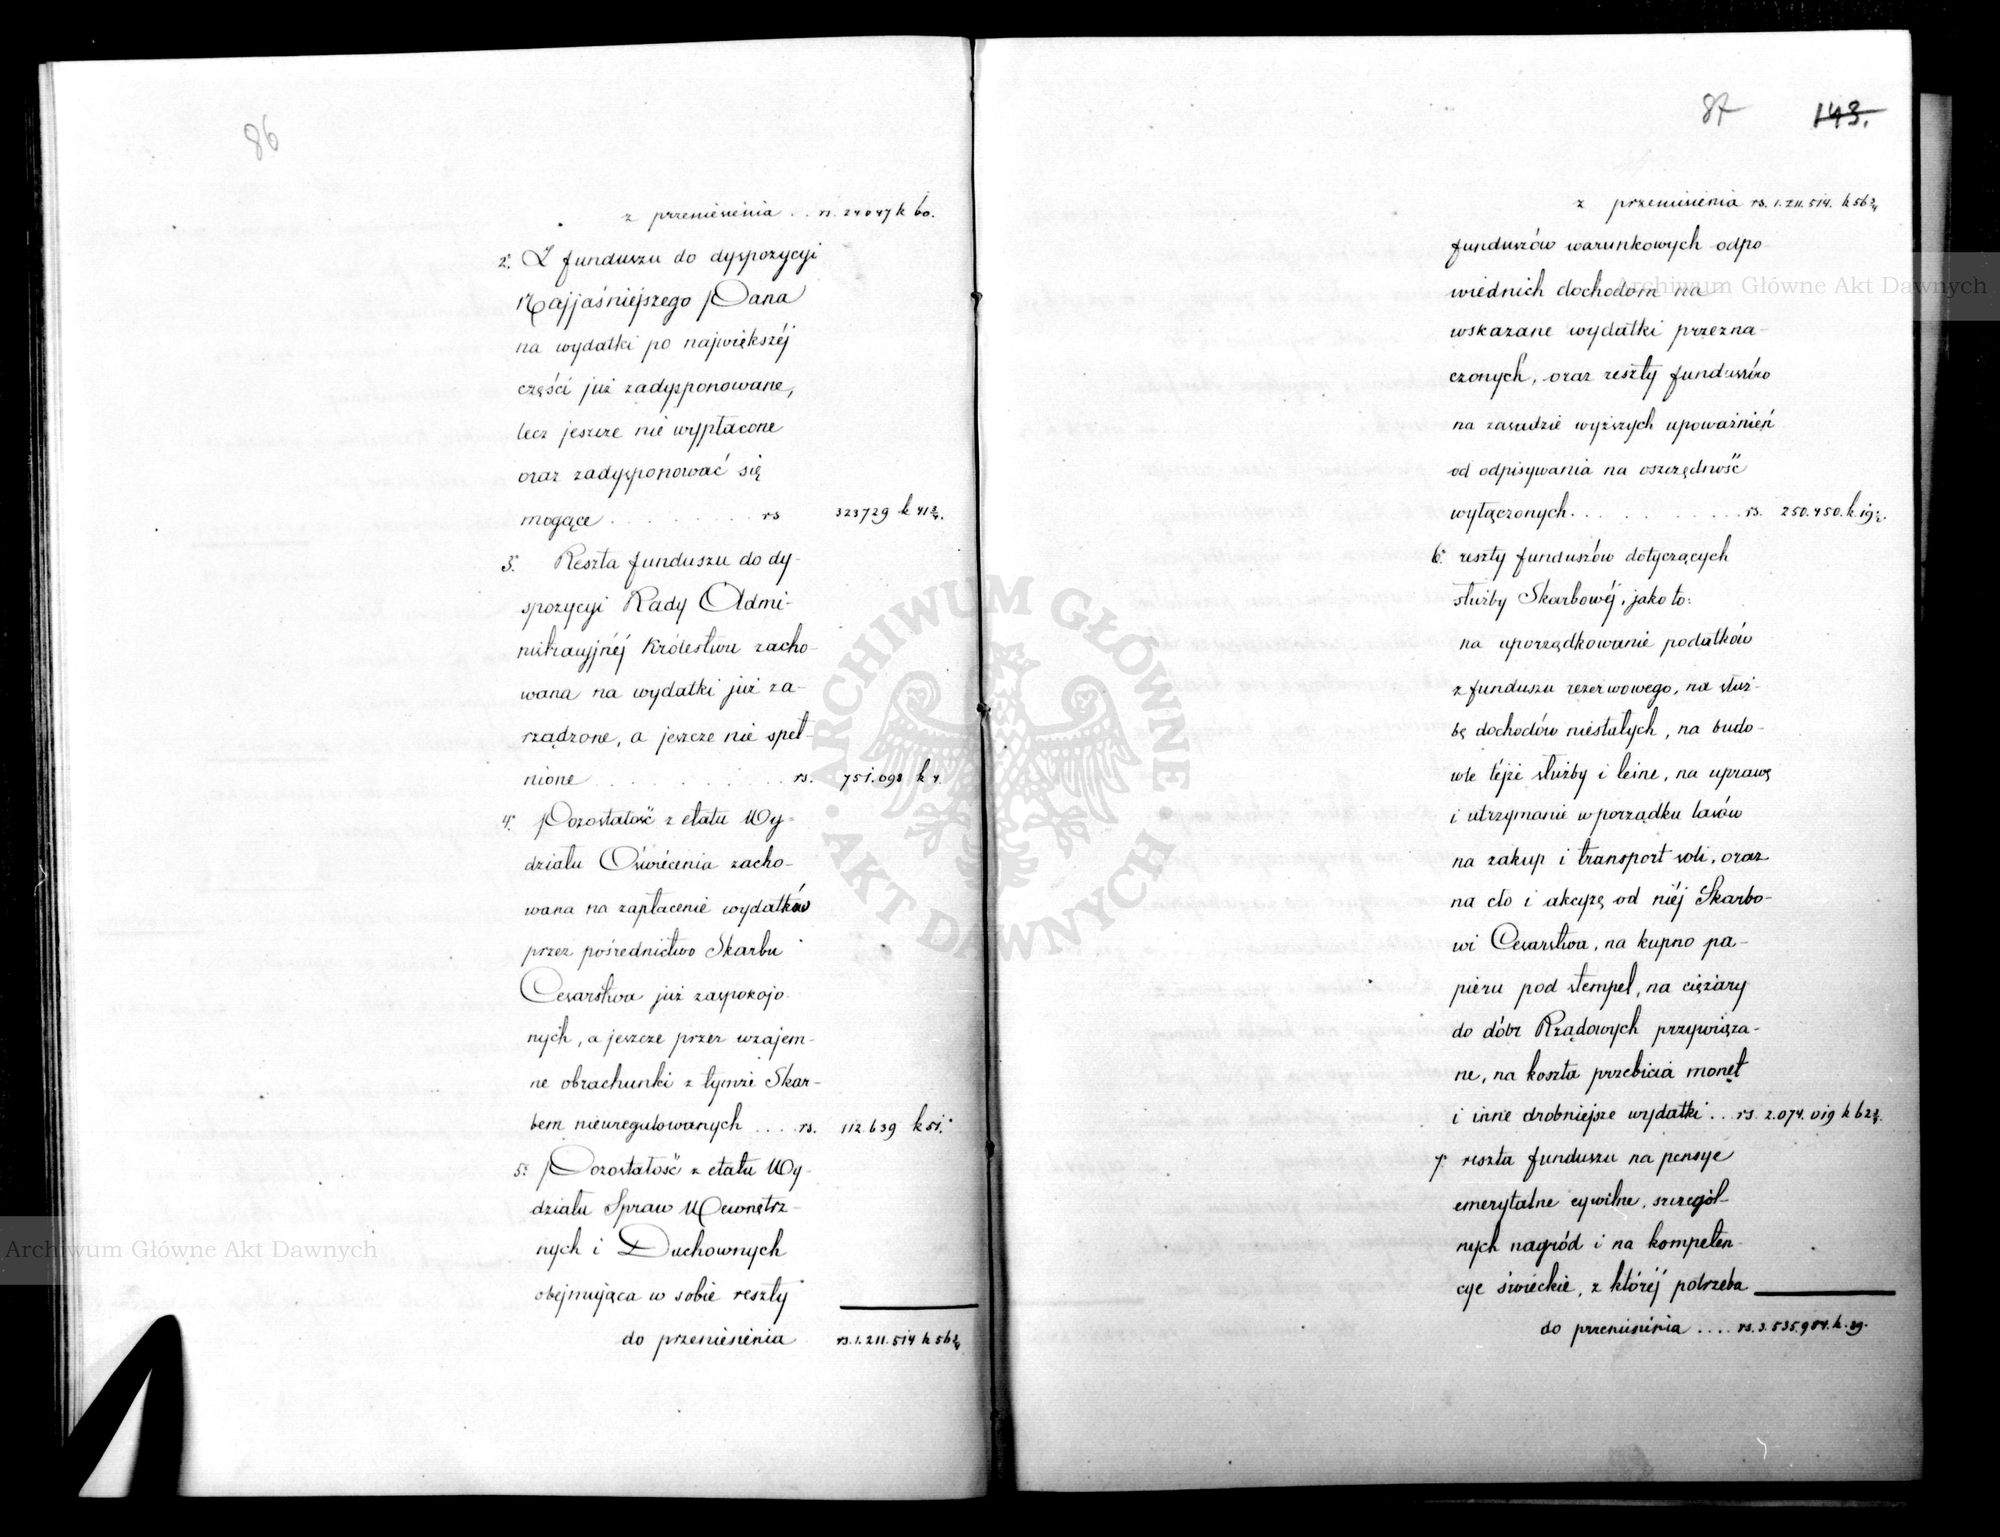 86
z przeniesienia .. rs. 24047 k 60.
2. Z funduszu do dyspozycyi
Najjaśniejszego Pana
na wydatki po największéj
części już zadysponowane,
lecz jeszcze nie wypłacone
oraz zadysponować się
mogące . . . . . . . . rs 323729 k 41 3/4.
3. Reszta funduszu do dy-
spozycyi Rady Admi-
nistracyjnéj Królestwu zacho-
wana na wydatki już za-
rządzone, a jeszcze nie speł-
nione . . . . . . . . rs. 751.098 k 4.
4. Pozostałość z etatu Wy-
działu Oświécenia zacho-
wana na zapłacenie wydatków
przez pośrednictwo Skarbu
Cesarstwa już zaspokojo-
nych, a jeszcze przez wzajem-
ne obrachunki z tymże Skar-
bem nieuregulowanych .... rs. 112.639 k 51.
5. Pozostałość z etatu Wy-
działu Spraw Wewnętrz-
nych i Duchownych
obejmująca w sobie reszty
do przeniesienia rs. 1.211.514 k 56 3/4
87 143.
z przeniesienia rs. 1.211.514. k 56 3/4
funduszów warunkowych odpo-
wiednich dochodom na
wskazane wydatki przezna-
czonych, oraz reszty funduszów
na zasadzie wyższych upoważnień
od odpisywania na oszczędność
wyłączonych. . . . . . . . rs. 250.450. k. 19 1/2.
6. reszty funduszów dotyczących
służby Skarbowéj, jako to:
na uporządkowanie podatków
z funduszu rezerwowego, na służ-
bę dochodów niestałych, na budo-
wle téjże służby i leśne, na uprawę
i utrzymanie w porządku lasów
na zakup i transport soli, oraz
na cło i akcyzę od niéj Skarbo-
wi Cesarstwa, na kupno pa-
pieru pod stempel, na ciężary
do dóbr Rządowych przywiąza-
ne, na koszta przebicia monet
i inne drobniejsze wydatki ... rs. 2.074.019 k 62 3/4.
7. reszta funduszu na pensye
emerytalne cywilne, szczegól-
nych nagród i na kompeten-
cye świeckie, z któréj potrzeba
do przeniesienia .... rs. 3.535.984. k. 39.
Archiwum Główne Akt Dawnych
ARCHIWUM GŁÓWNE · AKT DAWNYCH ·
Archiwum Główne Akt Dawnych